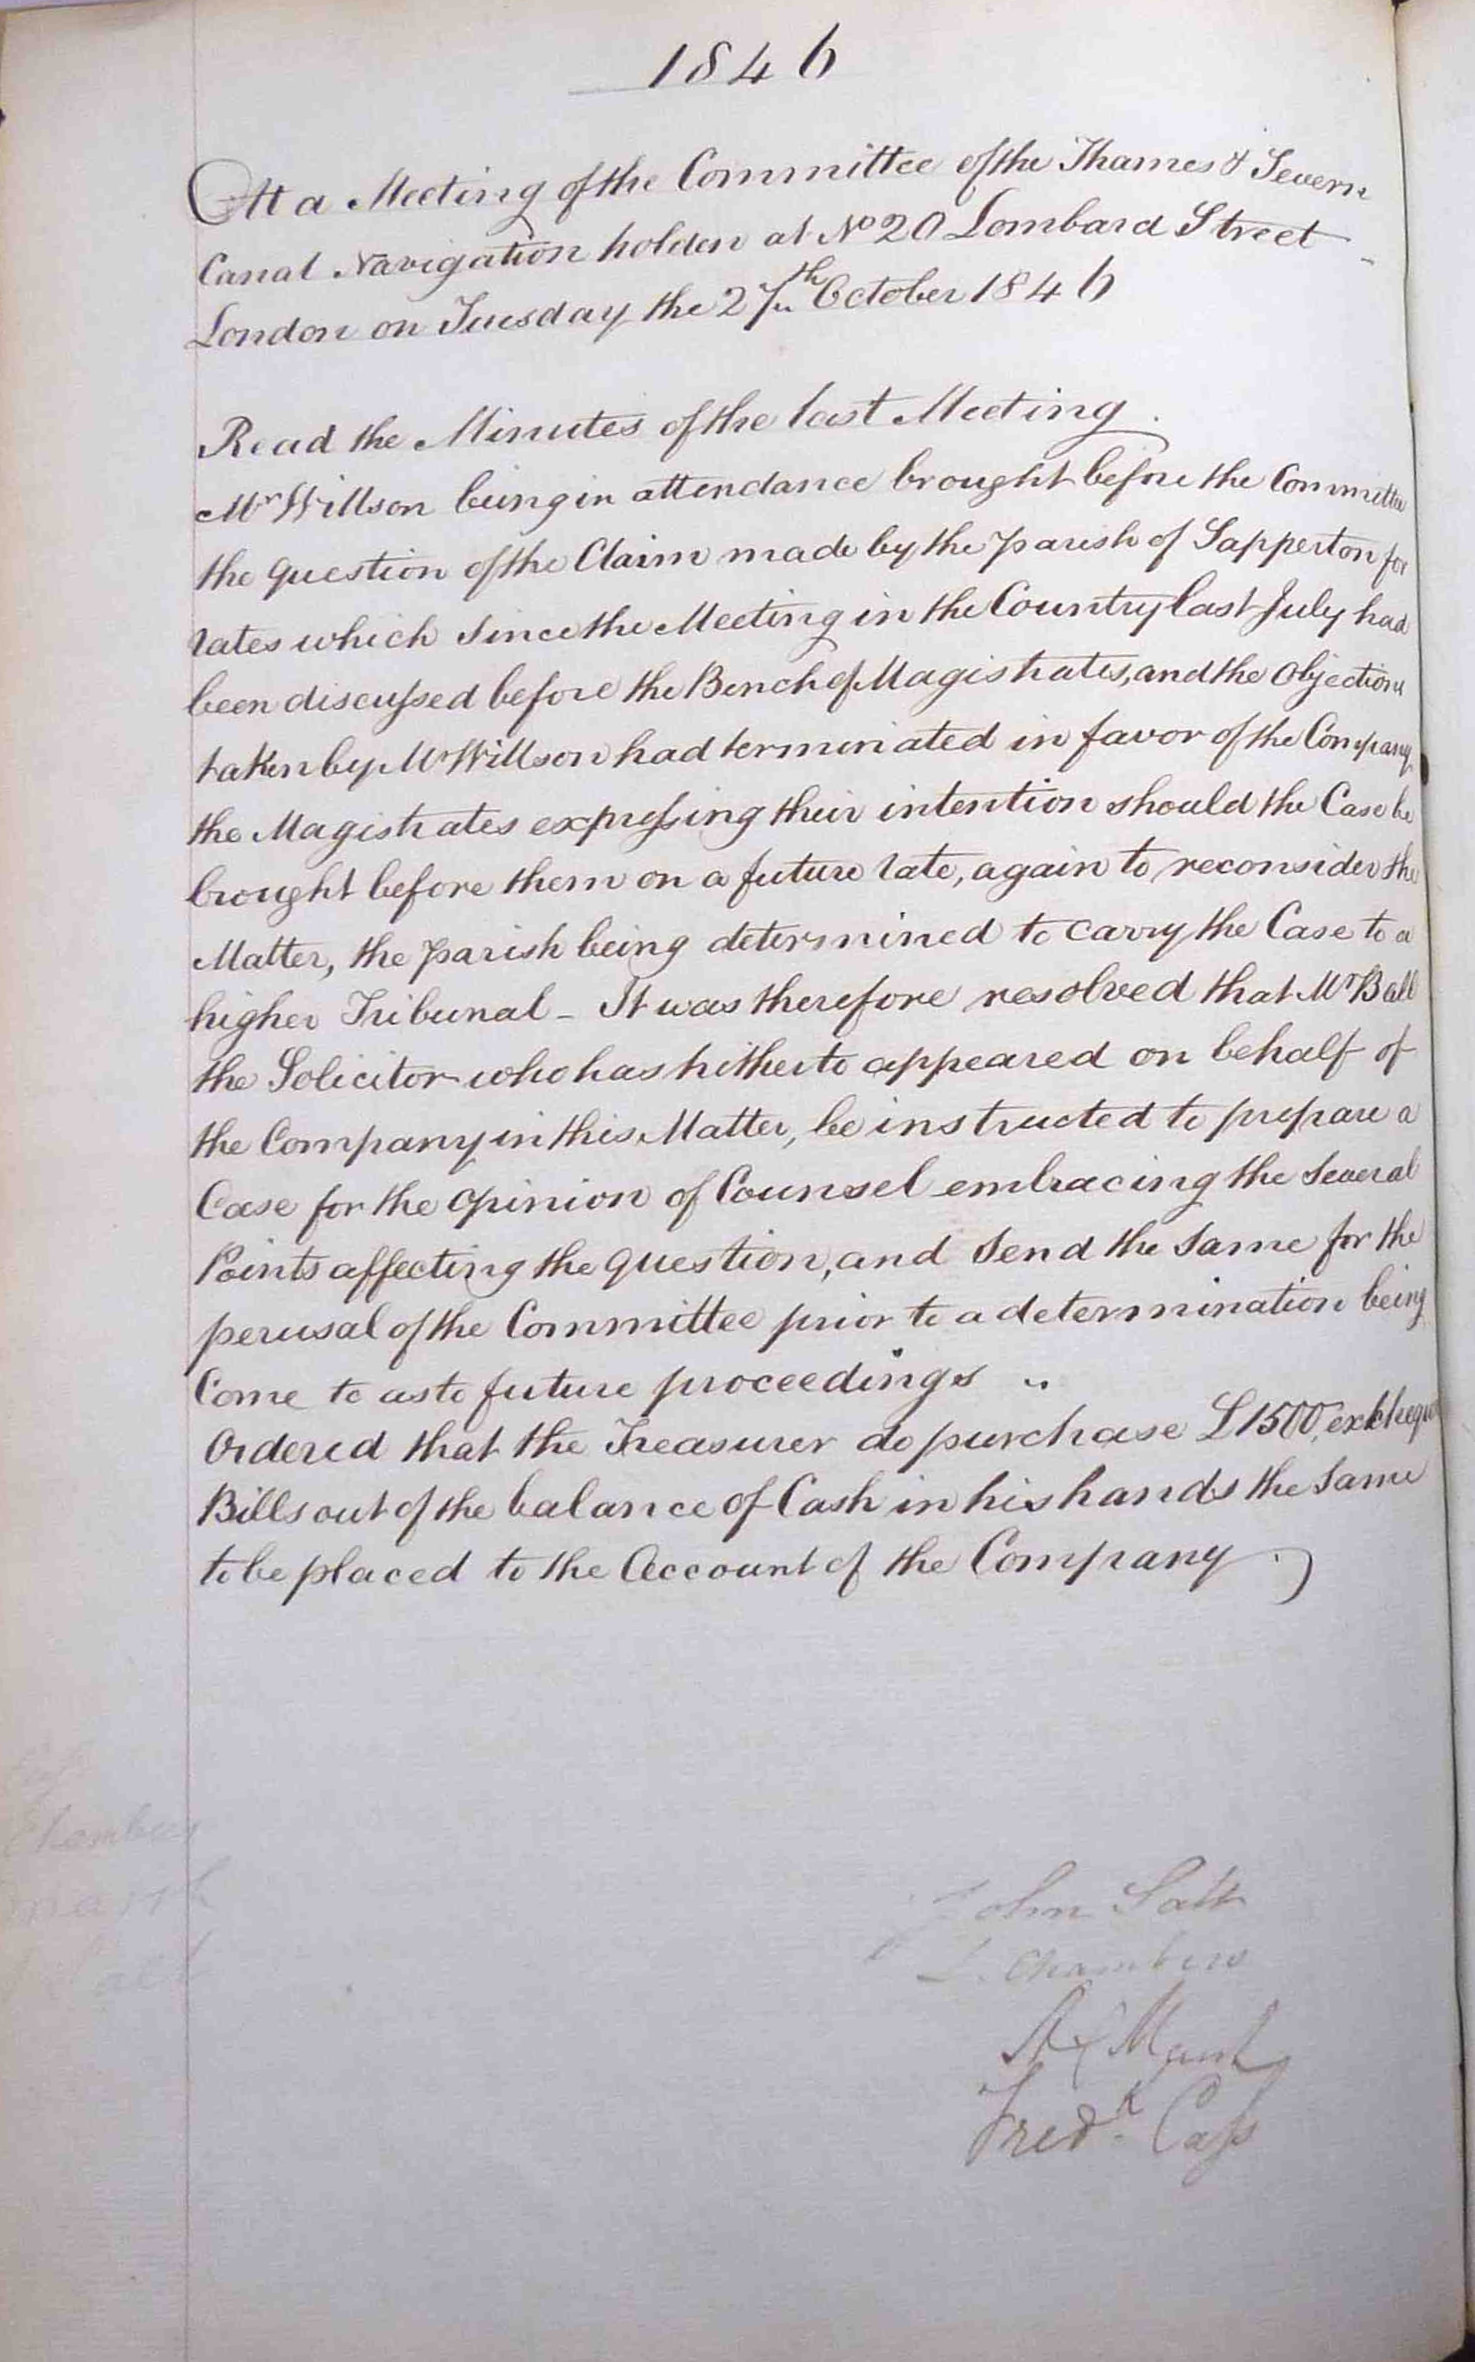 1846
At a Meeting of the Committee of the Thames & Severn
Canal Navigation holden at No 20 Lombard Street
London on Tuesday the 27th October 1846
Read the Minutes of the last Meeting.
Mr Willson being in attendance brought before the Committee
the question of the Claim made by the parish of Sapperton for
rates which since the Meeting in the Country last July had
been discussed before the Bench of Magistrates, and the Objections
taken by Mr Willson had terminated in favor of the Company
the Magistrates expressing their intention should the Case be
brought before them on a future rate, again to reconsider the
Matter, the parish being determined to carry the Case to a
higher Tribunal - It was therefore resolved that Mr Ball
the Solicitor who has hitherto appeared on behalf of
the Company in this Matter, be instructed to prepare a
Case for the opinion of Counsel embracing the several
Points affecting the question, and send the same for the
perusal of the Committee prior to a determination being
Come to as to future proceedings ..
Ordered that the Treasurer do purchase £1500, exchequer
Bills out of the balance of Cash in his hands the same
to be placed to the Account of the Company.
John Salt
Chambers
Fredk. Cass